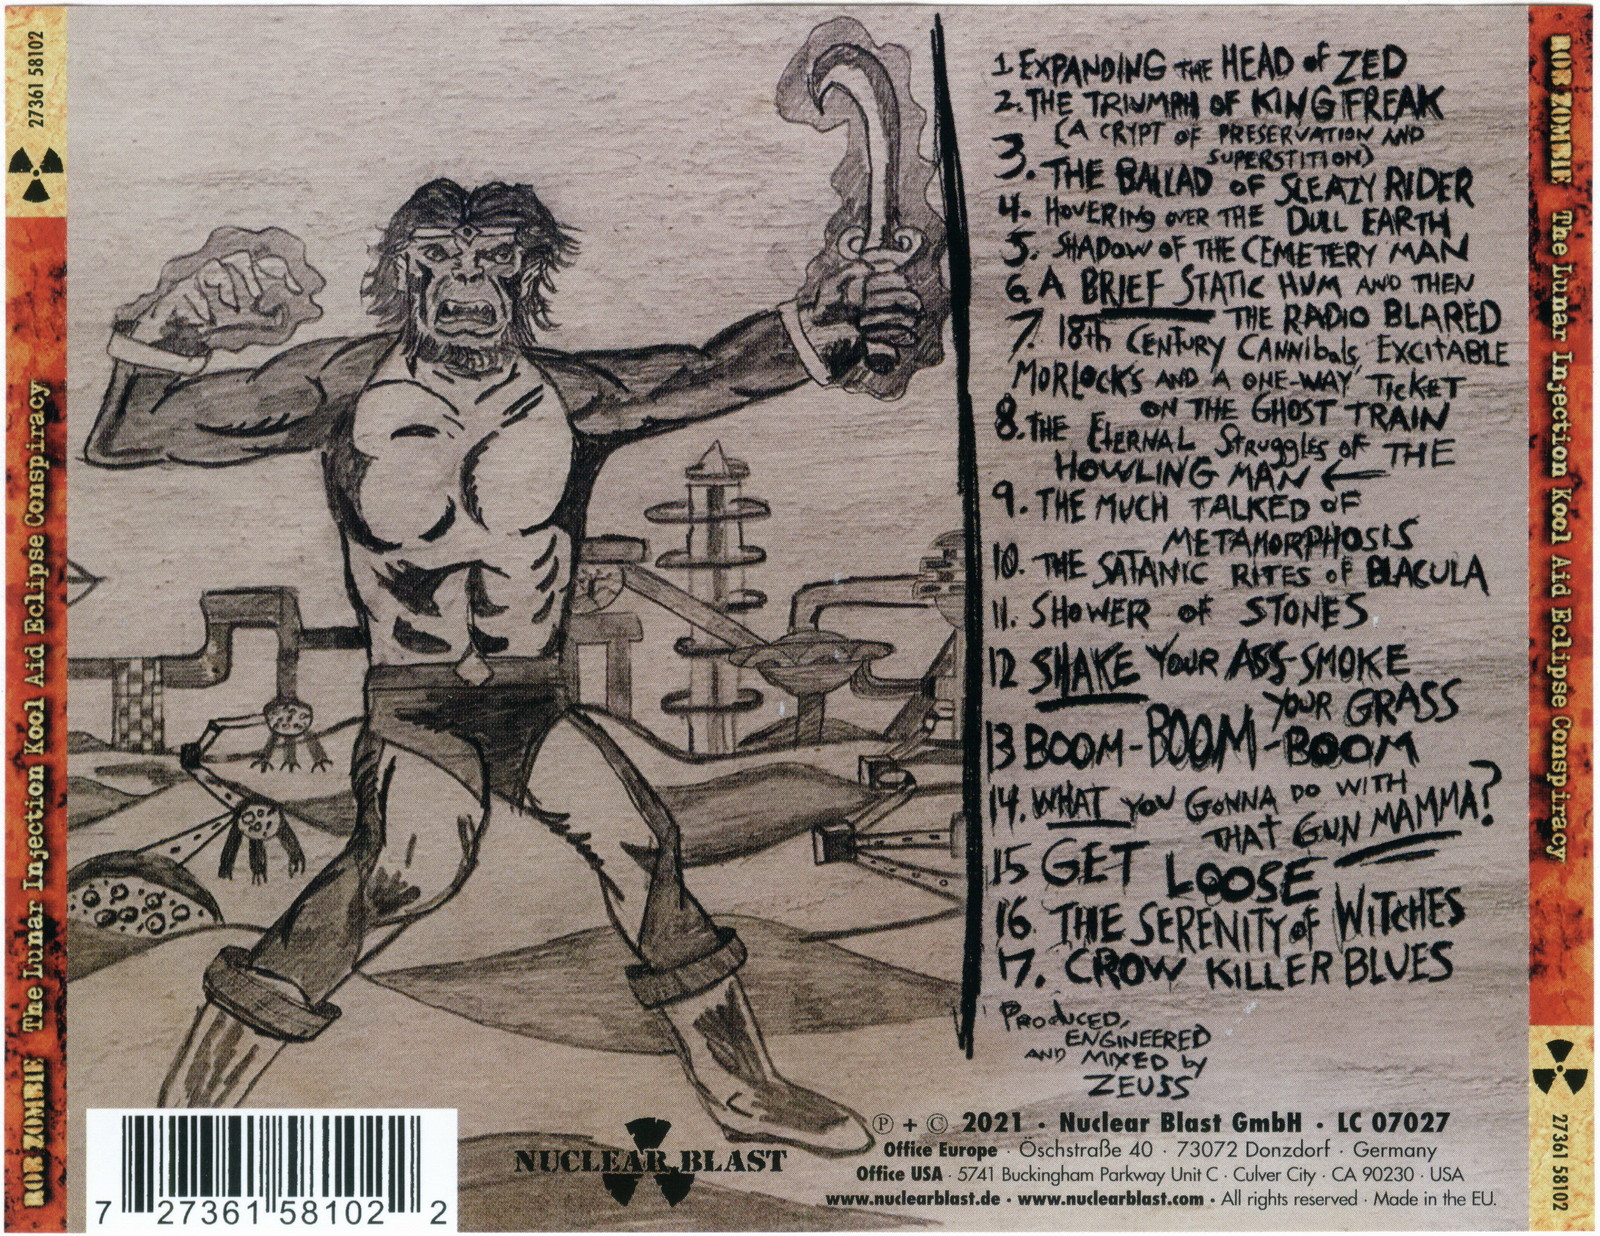 27361 58102
ROB ZOMBIE The Lunar Injection Kool Aid Eclipse Conspiracy
1 EXPANDING THE HEAD OF ZED
2. THE TRIUMPH OF KING FREAK
(A CRYPT OF PRESERVATION AND
SUPERSTITION)
3. THE BALLAD OF SLEAZY RIDER
4. HOVERING OVER THE DULL EARTH
5. SHADOW OF THE CEMETERY MAN
6. A BRIEF STATIC HUM AND THEN
THE RADIO BLARED
7. 18th CENTURY CANNIBALS, EXCITABLE
MORLOCKS AND A ONE-WAY TICKET
ON THE GHOST TRAIN
8. THE ETERNAL STRUGGLES OF THE
HOWLING MAN ←
9. THE MUCH TALKED OF
METAMORPHOSIS
10. THE SATANIC RITES OF BLACULA
11. SHOWER OF STONES
12 SHAKE YOUR ASS-SMOKE
YOUR GRASS
13 BOOM-BOOM-BOOM
14. WHAT YOU GONNA DO WITH
THAT GUN MAMMA?
15 GET LOOSE
16 THE SERENITY OF WITCHES
17. CROW KILLER BLUES
PRODUCED,
ENGINEERED
AND MIXED by
ZEUSS
7 27361 58102 2
NUCLEAR BLAST
℗ + © 2021 · Nuclear Blast GmbH · LC 07027
Office Europe · Öschstraße 40 · 73072 Donzdorf · Germany
Office USA · 5741 Buckingham Parkway Unit C · Culver City · CA 90230 · USA
www.nuclearblast.de · www.nuclearblast.com · All rights reserved · Made in the EU.
ROB ZOMBIE The Lunar Injection Kool Aid Eclipse Conspiracy
27361 58102